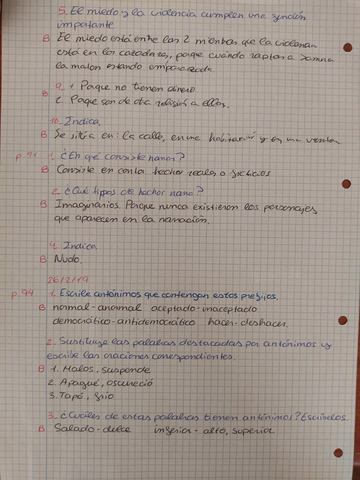 5. El miedo y la violencia cumplen una función
importante
B El miedo está entre las 2 mientras que la violencia
está en los cazadores, porque cuando raptan a
la matan estando embarazada
9. 1. Porque no tienen dinero
B 2. Porque son de otra religión a ellos.
10. Indica.
B Se sitúa en: la calle, en una habitación y en una ventana
p. 91 1. ¿En qué consiste narrar?
B Consiste en contar hechos reales o ficticios
2. ¿Qué tippos de hechos narra?
B Imaginarios. Porque nunca existieron los personajes
que aparecen en la narración.
4. Indica.
B Nudo.
26/2/19
p. 94 1. Escribe antónimos que contengan estos prefijos.
B normal-anormal aceptado-inaceptado
democrático-antidemocrático hacer-deshacer.
2. Sustituye las palabras destacadas por antónimos y
escribe las oraciones correspondientes.
B 1. Malos, suspende
2. Apagué, oscureció
3. Tapó, frío
3. ¿Cuáles de estas palabras tienen antónimos? Escríbelos.
B Salado-dulce inferior-alto, superior